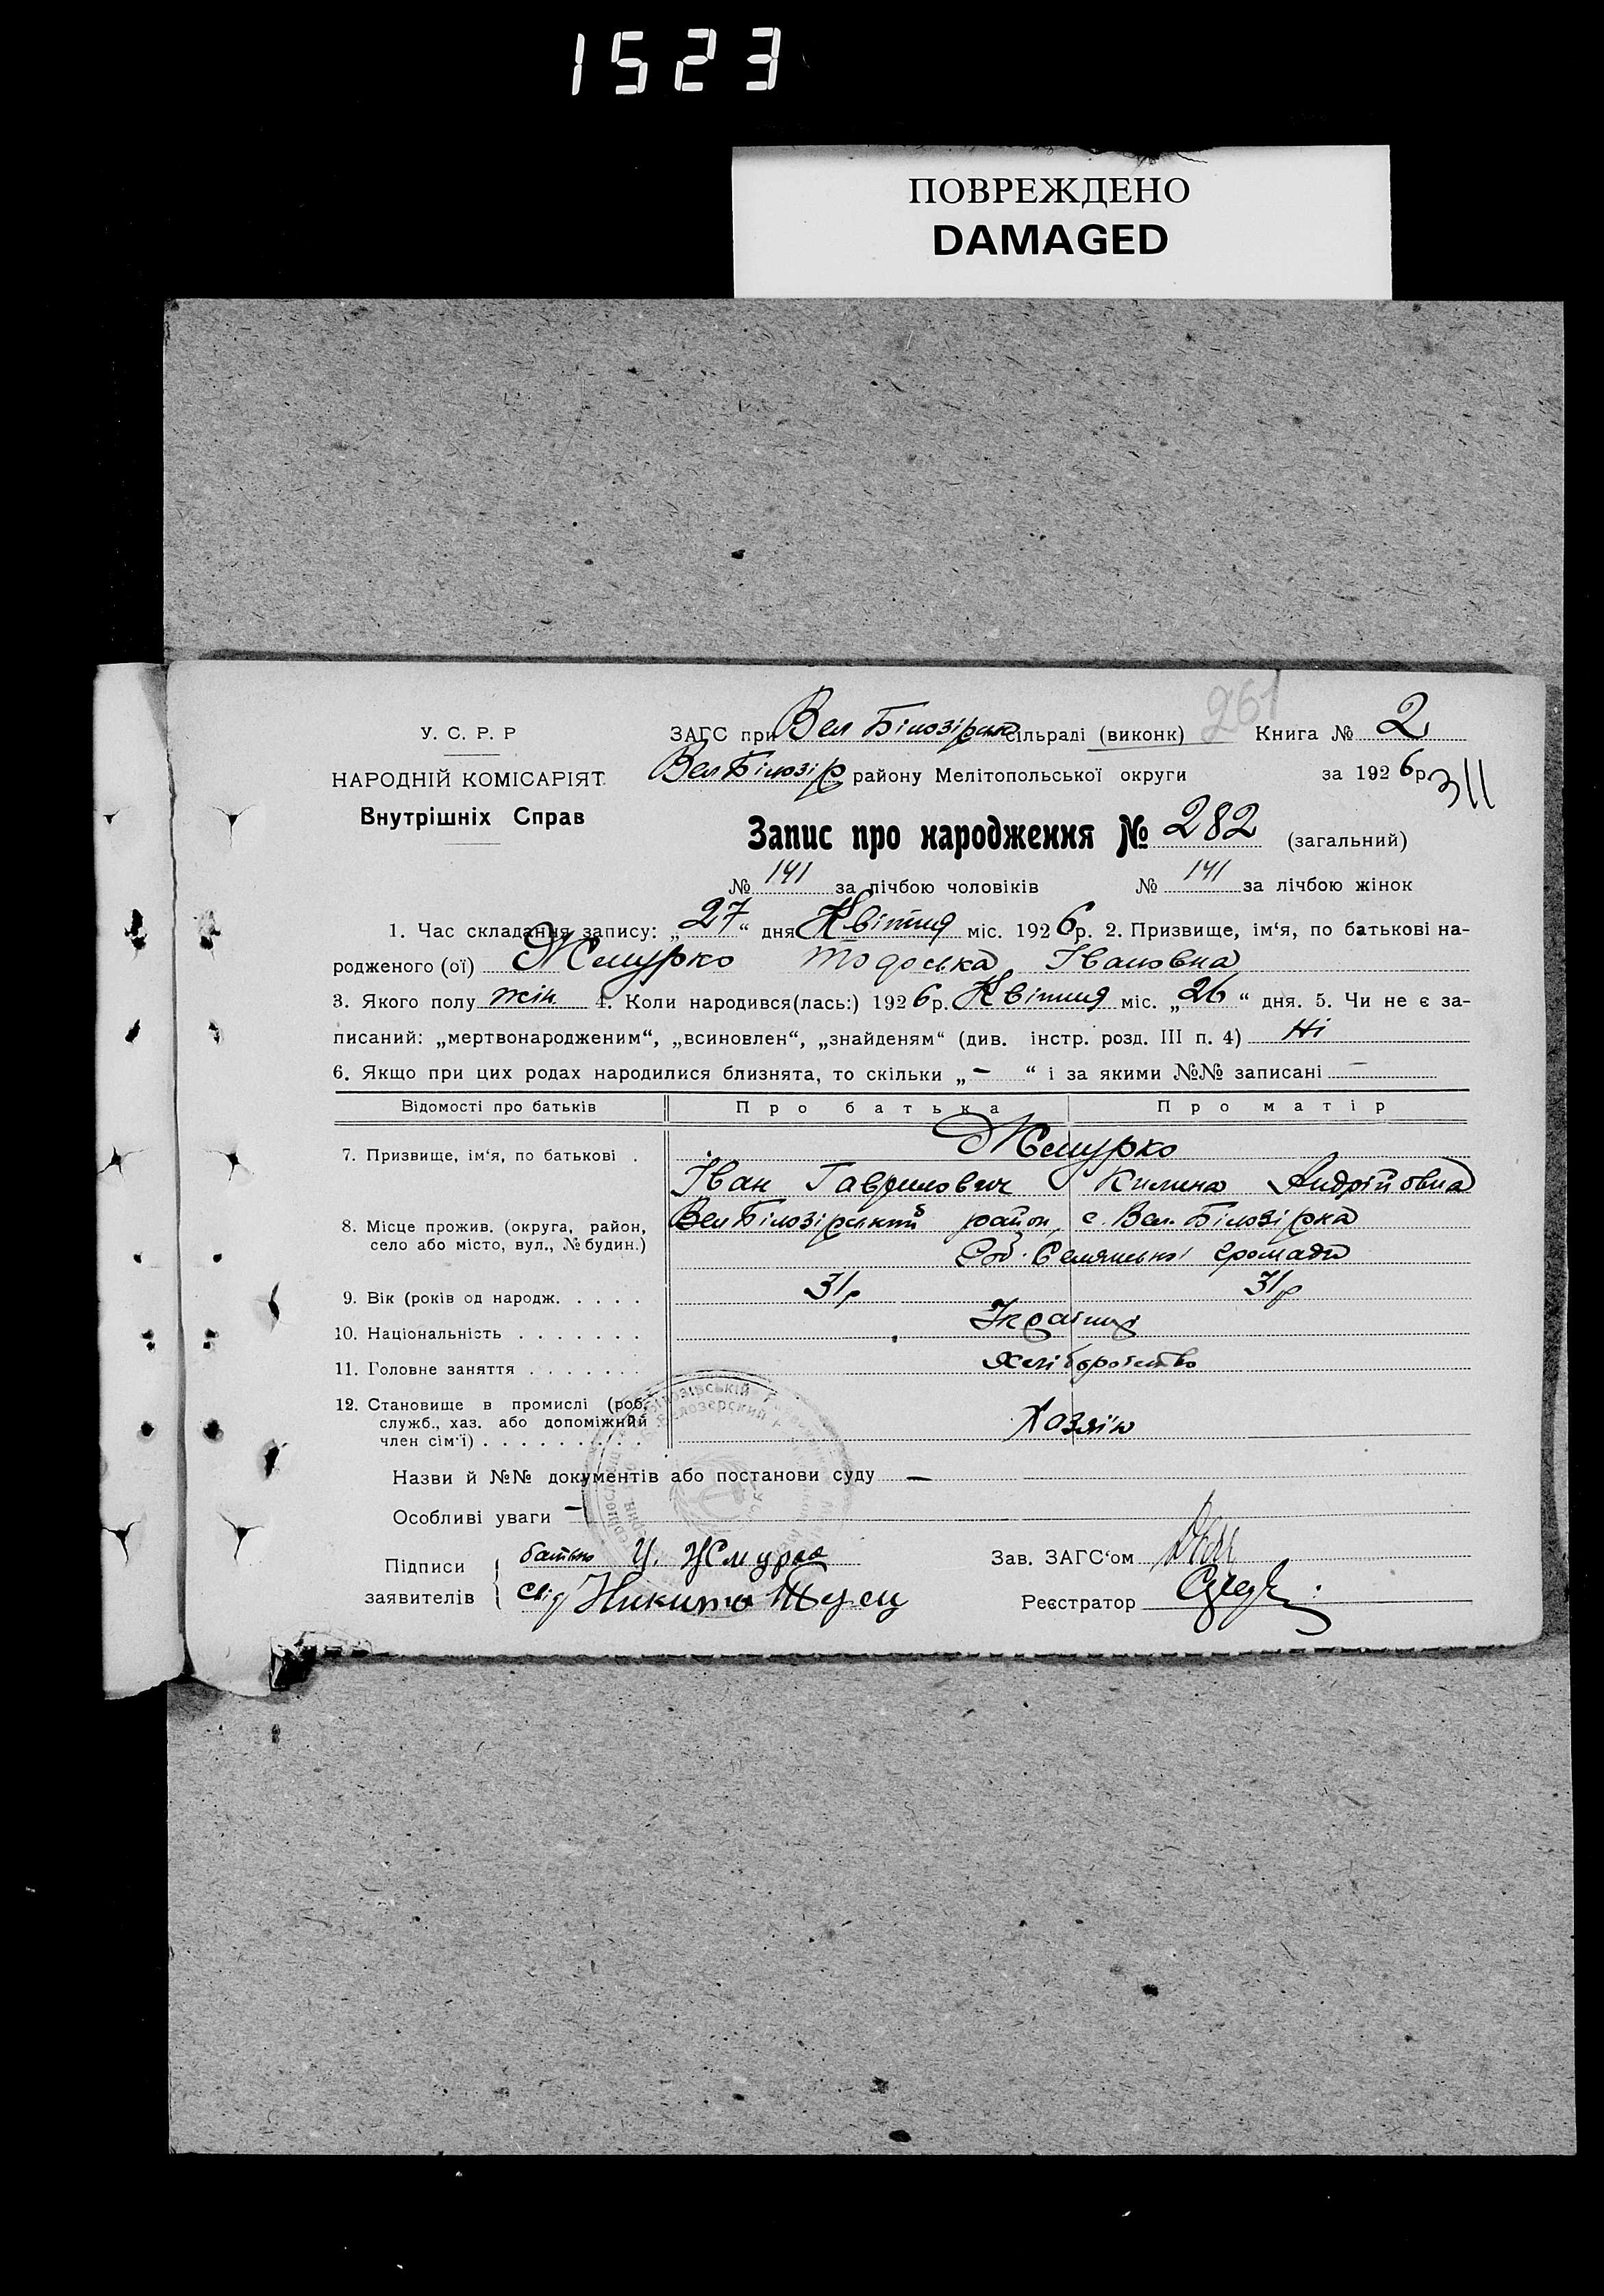 1523
ПОВРЕЖДЕНО
DAMAGED
261
У. С. Р. Р
НАРОДНІЙ КОМІСАРІЯТ
Внутрішніх Справ
ЗАГС при Вел Білозірськ сільраді (виконк) Книга № 2
Вел Білозір району Мелітопольської округи за 1926р.
311
Запис про народження № 282 (загальний)
№ 141 за лічбою чоловіків № 141 за лічбою жінок
1. Час складання запису: „27“ дня Квітня міс. 1926р. 2. Призвище, ім‘я, по батькові на-
родженого (ої) Жмурко Тодоська Івановна
3. Якого полу жін. 4. Коли народився(лась:) 1926р. Квітня міс. „26“ дня. 5. Чи не є за-
писаний: „мертвонародженим“, „всиновлен“, „знайденям“ (див. інстр. розд. III п. 4) Ні
6. Якщо при цих родах народилися близнята, то скільки „—“ і за якими №№ записані —
Відомості про батьків Про батька Про матір
7. Призвище, ім‘я, по батькові . Жмурко
Іван Гаврилович Килина Андрійовна
8. Місце прожив. (округа, район,
село або місто, вул., № будин.)
Вел Білозірський район, с. Вел. Білозірка
громади
9. Вік (років од народж. . . . . 31р 31р
10. Національність . . . . . . . Україnці
11. Головне заняття . . . . . . . Хліборобство
12. Становище в промислі (роб.
служб., хаз. або допоміжний
член сім‘ї) . . . . . . . . . . Хазяїн
Назви й №№ документів або постанови суду —
Особливі уваги —
Підписи
заявителів
батько И. Жмурко
свід Никита
Зав. ЗАГС‘ом
Реєстратор